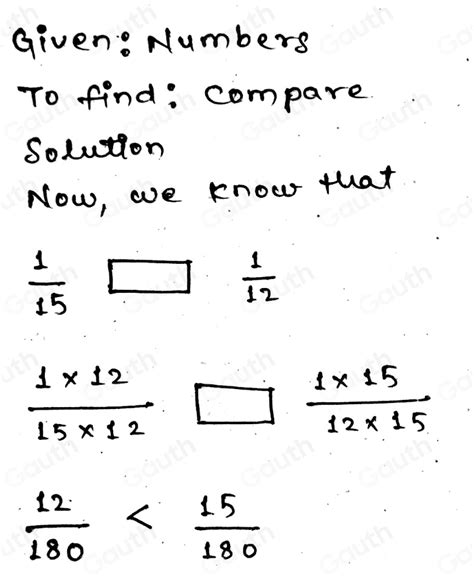 Given: Numbers
To find: Compare
Solution
Now, we know that
1/15 □ 1/12
1 × 12 / 15 × 12 □ 1 × 15 / 12 × 15
12/180 < 15/180